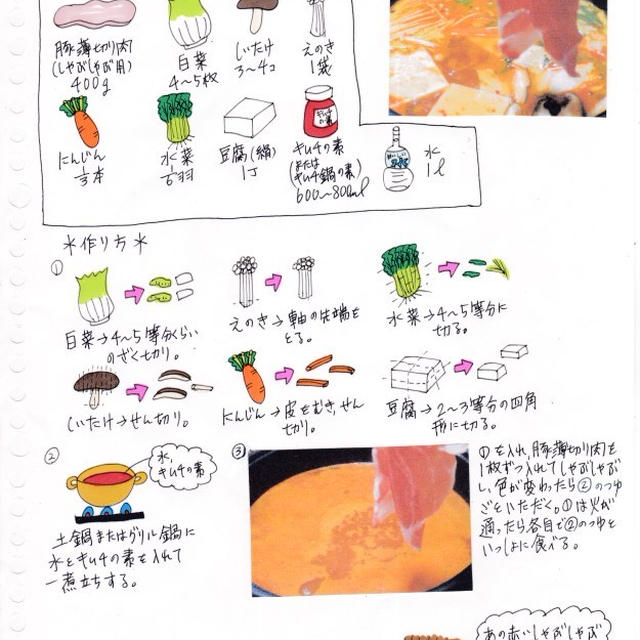 豚薄切り肉
(しゃぶしゃぶ用)
400g
白菜
4〜5枚
しいたけ
3〜4コ
えのき
1袋
にんじん
1/3本
水菜
豆腐(絹)
1丁
キムチの素
(または
キムチ鍋の素)
600〜800ml
水
1ℓ
*作り方*
①
白菜→4〜5等分くらい
のざく切り。
えのき→軸の先端を
とる。
水菜→4〜5等分に
切る。
しいたけ→せん切り。
にんじん→皮をむき、せん
切り。
豆腐→2〜3等分の四角
形に切る。
②
水、
キムチの素
土鍋またはグリル鍋に
水とキムチの素を入れて
一煮立ちする。
③
①を入れ、豚薄切り肉を
1枚ずつ入れてしゃぶしゃぶ
し、色が変わったら②のつゆ
ごといただく。①は火が
通ったら各自で②のつゆと
いっしょに食べる。
あの赤いしゃぶしゃぶ